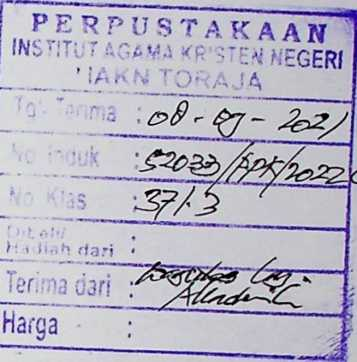 PERPUSTAKAAN
INSTITUT AGAMA KRISTEN NEGERI
IAKN TORAJA
Tgl. Terima : 08 - 09 - 2021
No Induk : 52033/
No Klas : 371.3
Dibeli/
Hadiah dari :
Terima dari :
Harga :